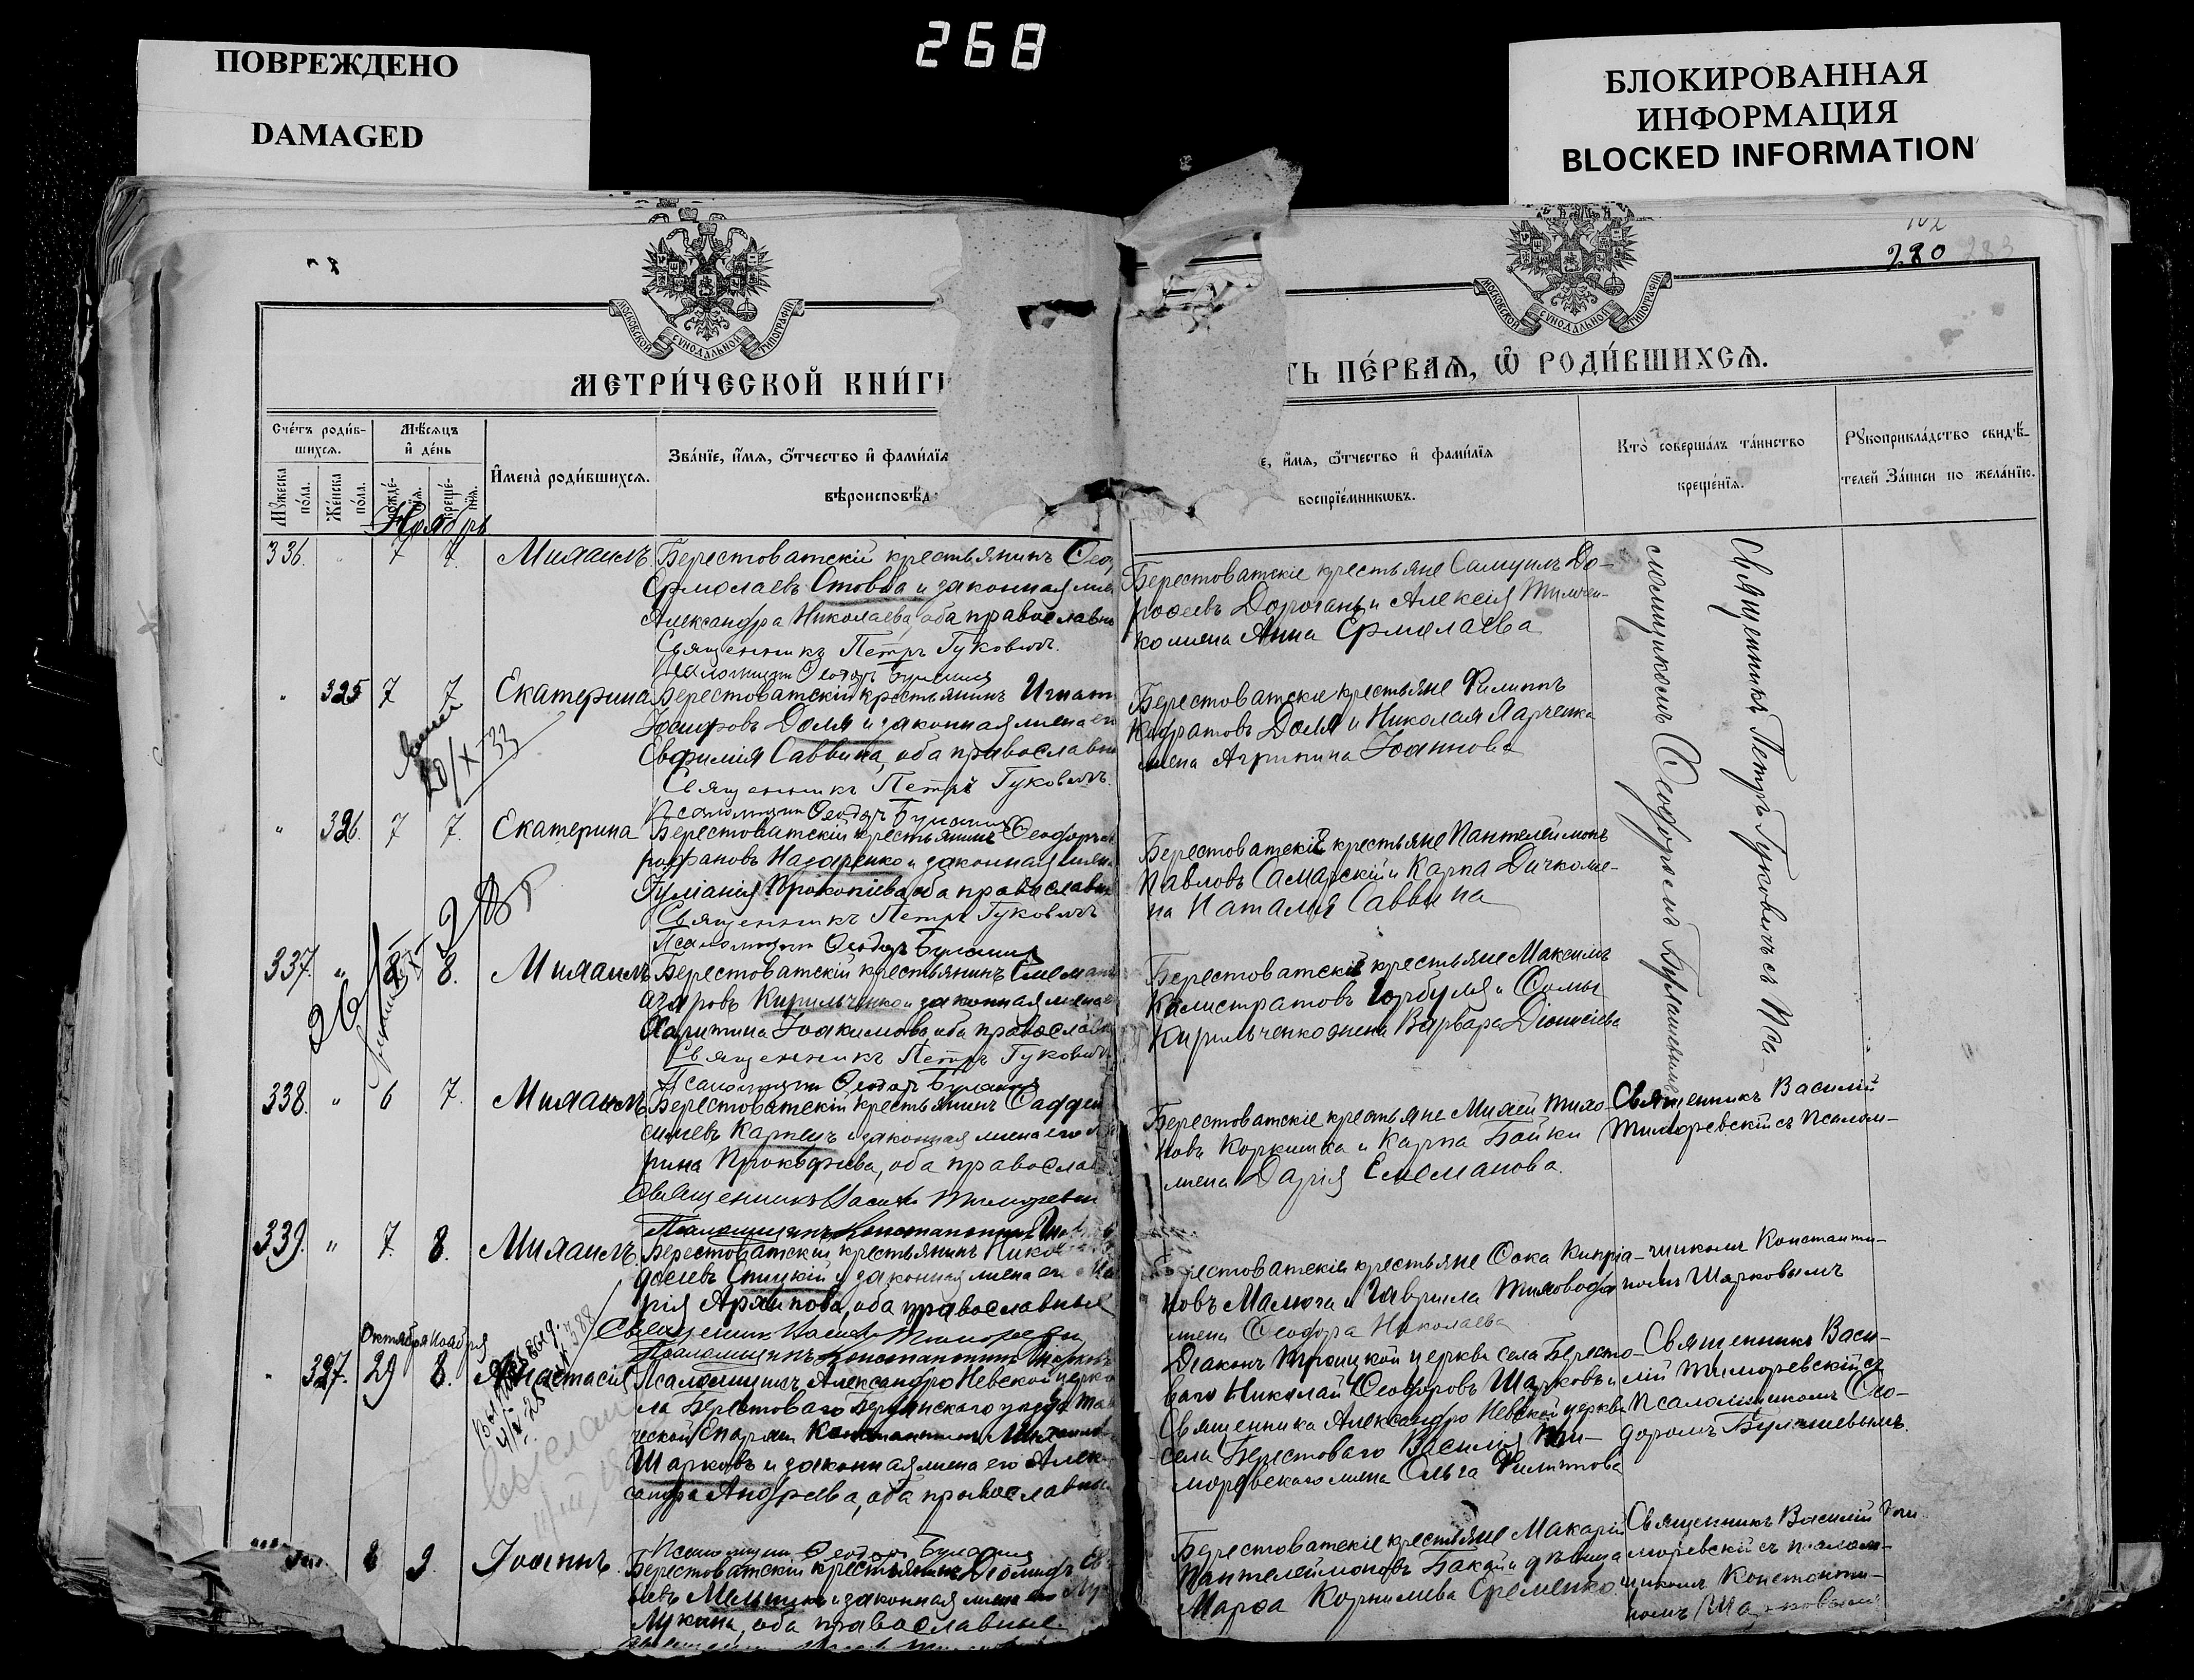 268
ПОВРЕЖДЕНО
DAMAGED
БЛОКИРОВАННАЯ
ИНФОРМАЦИЯ
BLOCKED INFORMATION
280 283
МОСКОВСКОЙ СѴНОДАЛЬНОЙ ТИПОГРАФІИ
МОСКОВСКОЙ СѴНОДАЛЬНОЙ ТИПОГРАФІИ
МЕТРИ́ЧЕСКОЙ КНИ́ГИ
ТЬ ПЕ́РВАѦ, Ѿ РОДИ́ВШИХСѦ.
Сче́тъ роди́в-
шихсѧ.
Мꙋ́жеска по́ла.
Же́нска по́ла.
Мѣ́сѧцъ
и҆ де́нь
рожде́-
нїѧ.
креще́-
нїѧ.
И҆мена̀ роди́вшихсѧ.
Зва́нїе, и҆́мѧ, ѻ҆́тчество и҆ фамилїѧ
вѣроисповѣд
е, и҆́мѧ, ѻ҆́тчество и҆ фамилїѧ
воспрїе́мникѡвъ.
Кто̀ соверша́лъ та́инство
креще́нїѧ.
Рꙋкоприкла́дство свидѣ́-
телей За́писи по жела́нїю.
Ноябрь
336. " 7 7. Михаилъ
Берестоватскій крестьянинъ Ѳео
Ермолаевъ Стовба и законная
Александра Николаева, оба православны
Священникъ Петръ Гуковичъ.
Берестоватскіе крестьяне Самуилъ До-
роѳеевъ Дорогань и Алексія Тимчен-
ко жена Анна Ермолаева
Священникъ Петръ Гуковичъ съ Пса-
ломщикомъ Ѳеодоромъ Булашевымъ
" 325 7 7 Екатерина
Берестоватскій крестьянинъ Игнат
Доля и законная жена его
Евфимія Саввина, оба православны
Священникъ Петръ Гуковичъ.
Псаломщикъ Ѳеодоръ
Берестоватские крестьяне Филиппъ
Доля и Николая Харченка
жена Агрипина Іоаннова
20/X-33
" 326. 7 7. Екатерина
Берестоватскій крестьянинъ Ѳеодоръ
рофановъ Назаренко и законная жена
Іуліанія Прокопіева, оба православны
Священникъ Петръ Гуковичъ
Псаломщикъ Ѳеодоръ
Берестоватскіе крестьяне Пантелеймонъ
Павловъ Самарскій и Карпа Дичко же-
на Наталія Саввина
337. " 8 8. Михаилъ
Берестоватскій крестьянинъ
Кирильченко и законная жена
Харитина Іоакимова, оба православ
Священникъ Петръ Гукович
Псаломщикъ Ѳеодоръ
Берестоватскіе крестьяне Максимъ
Калистратовъ Горбуля и Ѳомы
Кирильченко жена Варвара Діонисіева
338. " 6 7. Михаилъ
Берестоватскій крестьянинъ Ѳадде
Карпецъ и законная жена его
рина Прокофіева, оба православ
Священникъ Василій Тиморевскі
Берестоватскіе крестьяне Михей Тихо-
новъ Коркишка и Карпа Бойки
жена Дарія Емеманова.
Священникъ Василій
Тиморевскій съ Псалом-
339. " 7. 8. Михаилъ.
Берестоватскій крестьянинъ Нико
Спицкій и законная жена его
рія Архипова, оба православные
Священникъ Василій Тиморевскі
Псаломщикъ Константинъ Шарковъ
рестоватскіе крестьяне Ѳока Кипріа-
новъ Малюча и Гавриила Тиховода
жена Ѳеодора Николаева
щикомъ Константи-
номъ Шарковымъ
Октября Ноября
" 327. 29 8. Анастасія
Псаломщикъ Александро Невской церкв
ла Берестоваго Бердянскаго уезда Тав
ческой Епархіи Константинъ Михаило
Шарковъ и законная жена его Алек-
сандра Андреева, оба православны
Псаломщикъ Ѳеодоръ
Діаконъ Троицкой церкви села Бересто-
ваго Николай Ѳеодоровъ Шарковъ и
Священника Александро Невской церкви
села Берестоваго Василія Ти-
моревскаго жена Ольга Филиппова
Священникъ Васи-
лій Тиморевскій съ
Псаломщикомъ Ѳео-
доромъ Булашевымъ.
8 9. Іоаннъ.
Берестоватскій крестьянинъ Діомидъ
Мельникъ и законная жена его
Лукина, оба православные.
Берестоватскіе крестьяне Макарій
Пантелеймоновъ Бакай и дѣвица
Марѳа Корнилева Еременко
Священникъ Василій Ти
моревскій съ псалом-
щикомъ Константи-
номъ Шарковымъ